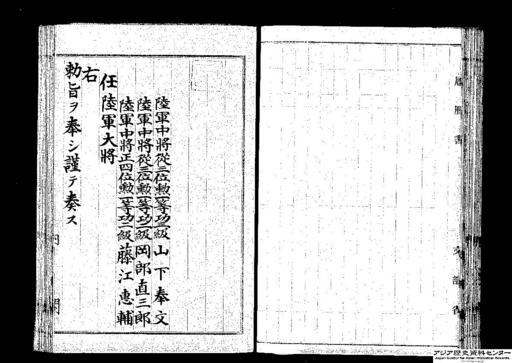 陸軍中将従三位勲一等功二級山下奉文
陸軍中将従三位勲一等功二級岡部直三郎
陸軍中将正四位勲一等功二級藤江恵輔
任陸軍大将
右
勅旨ヲ奉シ謹テ奏ス
内閣
アジア歴史資料センター
Japan Center for Asian Historical Records